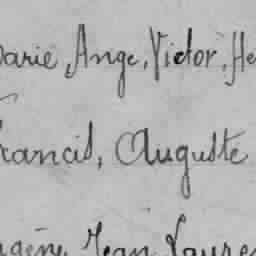 Marie, Ange, Victor, He
Francis, Auguste
Eugène, Jean, Laure